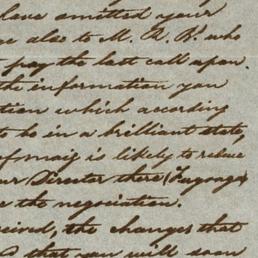 have omitted your
also to M. A. R. who
pay the last call upon
the information you
tion which according
to be in a brilliant state,
is likely to
our Director there
e the negociation.
ceived, the changes that
that you will soon